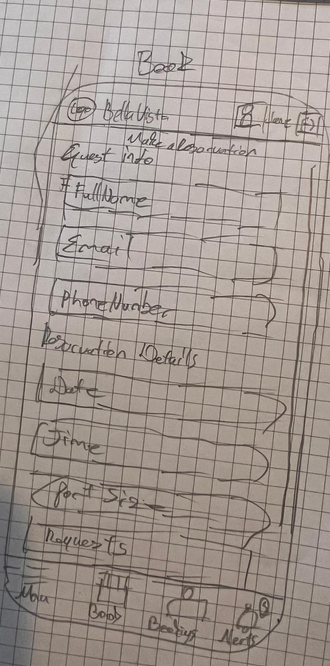 Book
Logo BellaVista
Make a Reservation
Guest info
Full Name
Email
Phone Number
Reservation Details
Date
Time
Part Size
Requests
Menu Book Bookings Alerts